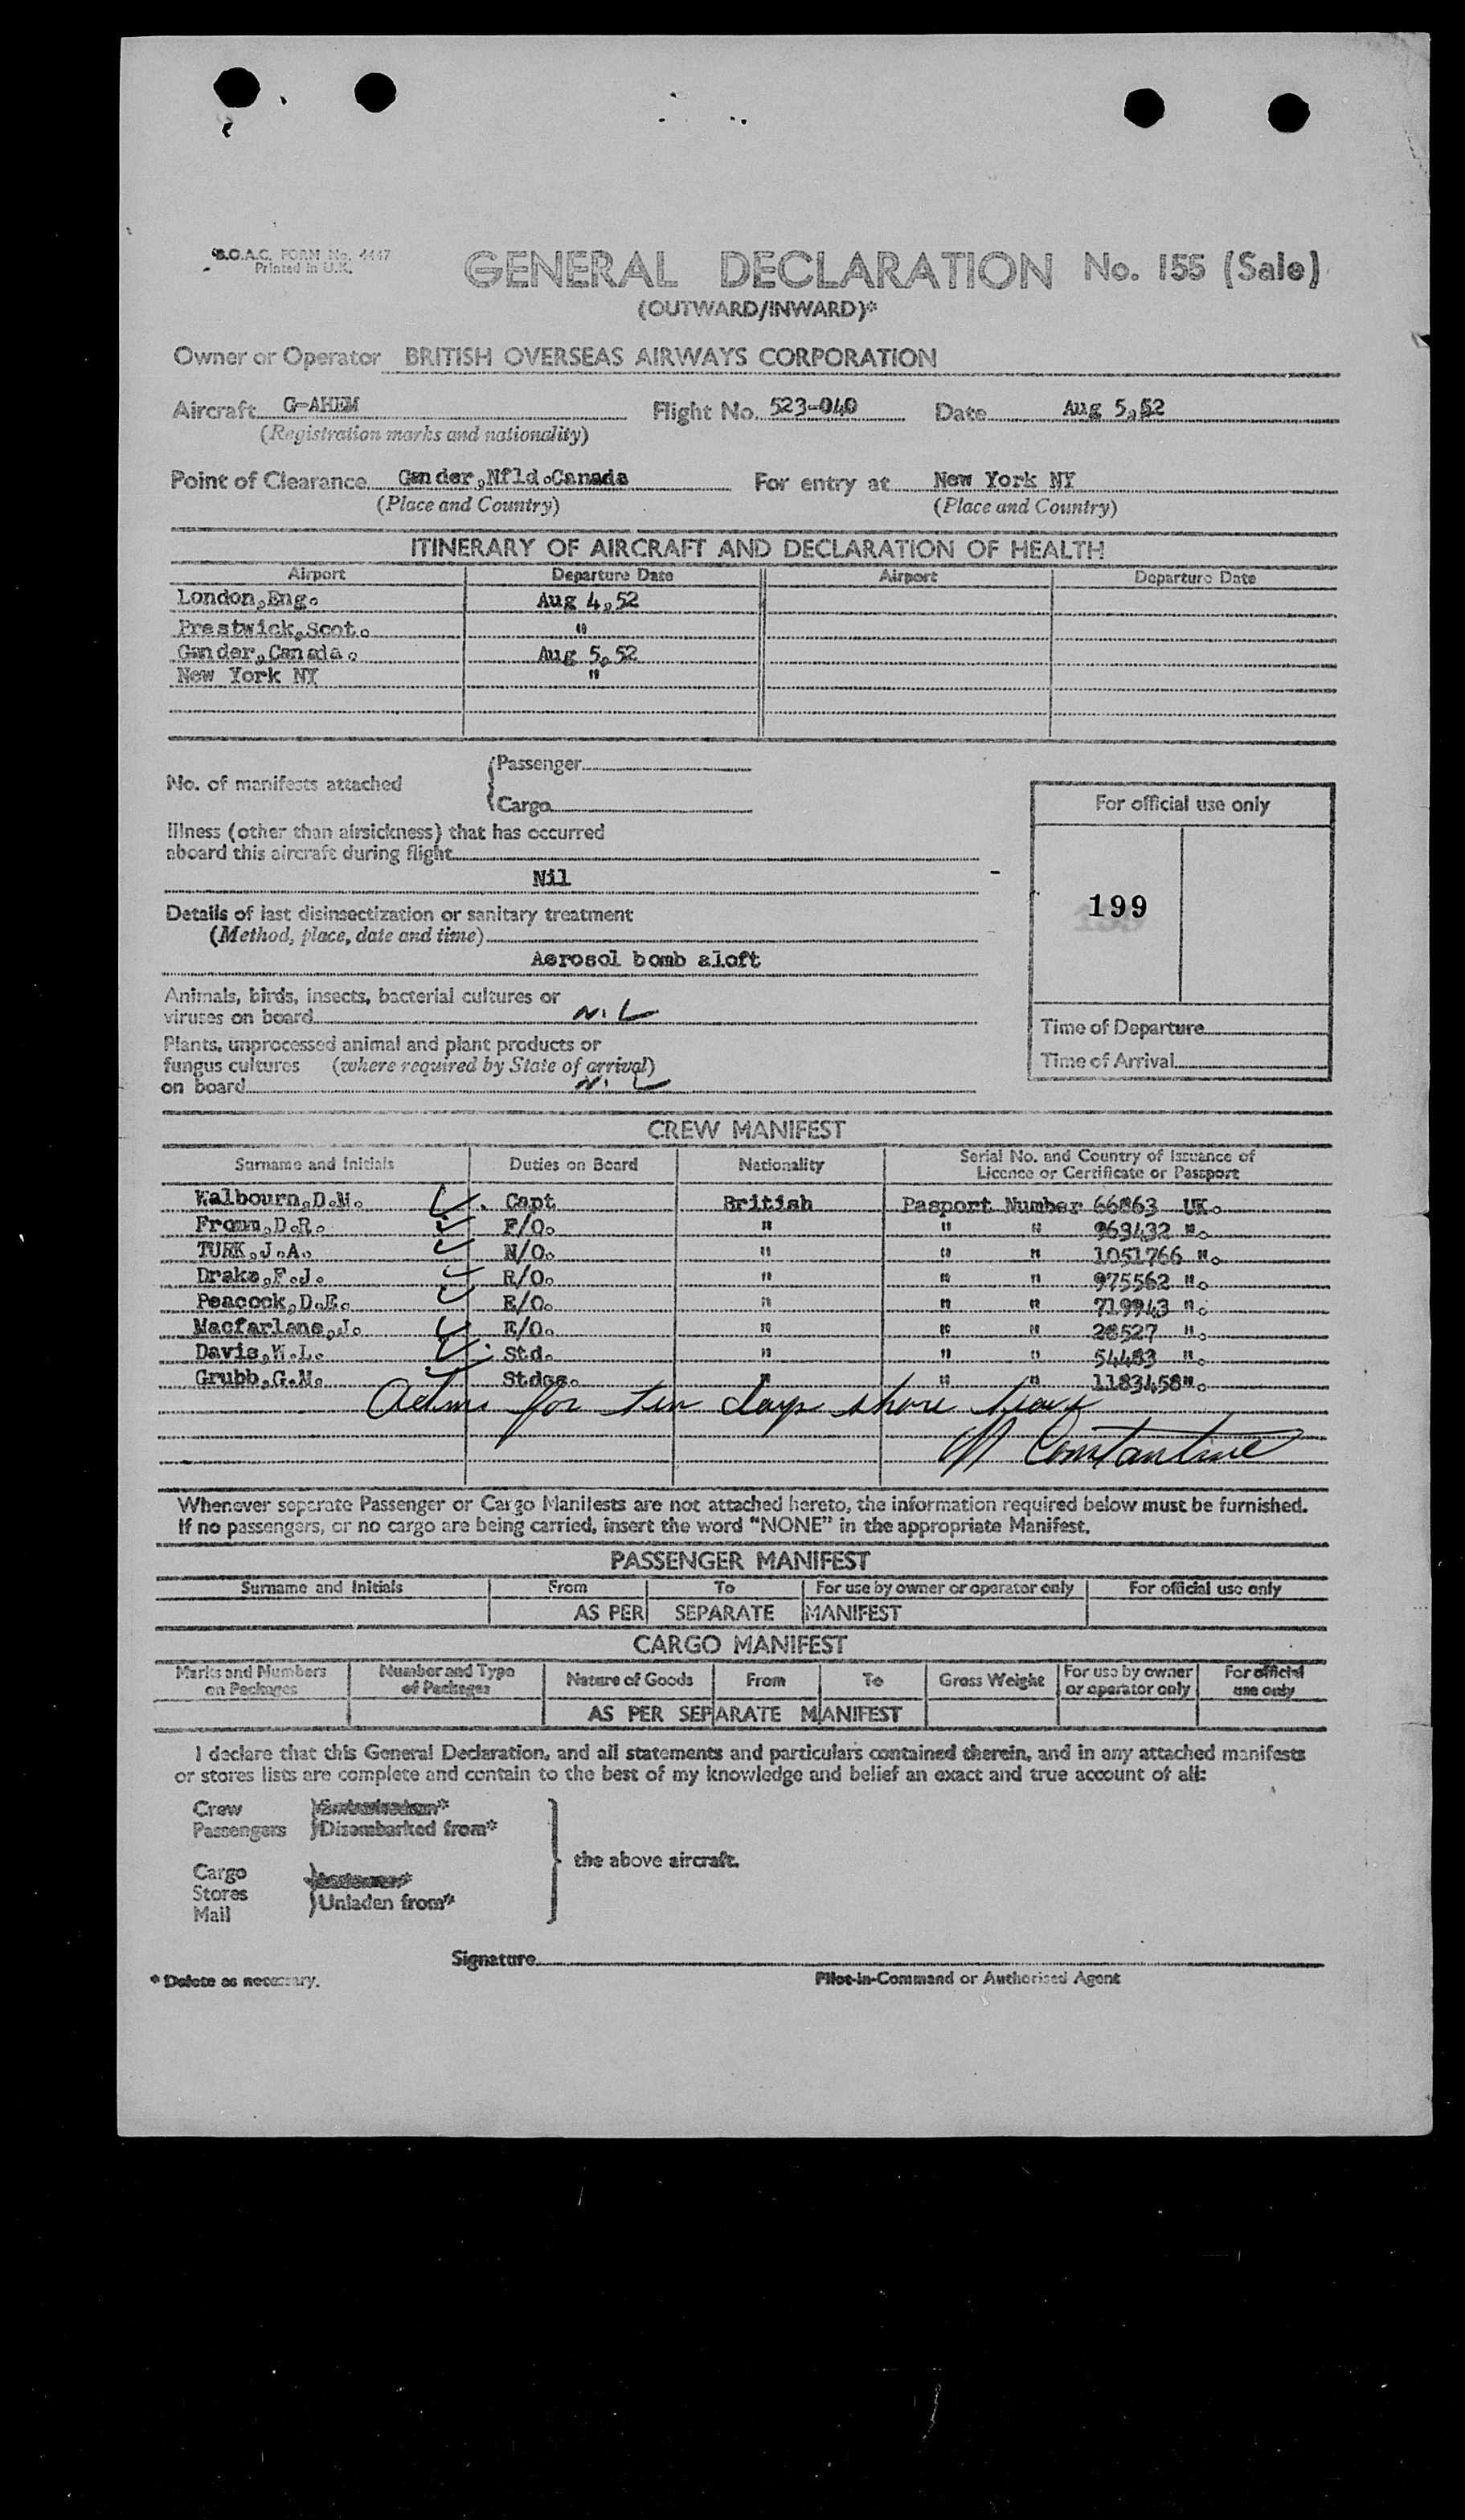 B.O.A.C. FORM No. 4447
Printed in U.K.
GENERAL DECLARATION No. 155 (Sale)
(OUTWARD/INWARD)*
Owner or Operator BRITISH OVERSEAS AIRWAYS CORPORATION
Aircraft G-AHEM Flight No. 523-040 Date Aug 5,52
(Registration marks and nationality)
Point of Clearance Gander,Nfld.Canada For entry at New York NY
(Place and Country) (Place and Country)
ITINERARY OF AIRCRAFT AND DECLARATION OF HEALTH
Airport Departure Date Airport Departure Date
London,Eng. Aug 4,52
Prestwick,Scot. "
Gander,Canada. Aug 5,52
New York NY "
No. of manifests attached { Passenger
Cargo
For official use only
Illness (other than airsickness) that has occurred
aboard this aircraft during flight
Nil
199
Details of last disinsectization or sanitary treatment
(Method, place, date and time)
Aerosol bomb aloft
Animals, birds, insects, bacterial cultures or
viruses on board NIL
Time of Departure
Plants, unprocessed animal and plant products or
fungus cultures (where required by State of arrival)
on board NIL
Time of Arrival
CREW MANIFEST
Surname and Initials Duties on Board Nationality Serial No. and Country of Issuance of
Licence or Certificate or Passport
Walbourn,D.M. Capt British Pasport Number 66863 UK.
Fromm,D.R. F/O. " " " 963432 ".
TURK,J.A. N/O. " " " 1051766 ".
Drake,F.J. R/O. " " " 975562 ".
Peacock,D.E. E/O. " " " 719943 ".
Macfarlane,J. E/O. " " " 28527 ".
Davis,W.L. Std. " " " 54483 ".
Grubb,G.M. Stdss. " " " 1183458".
for ten days shore leave
Constantine
Whenever separate Passenger or Cargo Manifests are not attached hereto, the information required below must be furnished.
If no passengers, or no cargo are being carried, insert the word "NONE" in the appropriate Manifest.
PASSENGER MANIFEST
Surname and Initials From To For use by owner or operator only For official use only
AS PER SEPARATE MANIFEST
CARGO MANIFEST
Marks and Numbers on Packages Number and Type of Packages Nature of Goods From To Gross Weight For use by owner or operator only For official use only
AS PER SEPARATE MANIFEST
I declare that this General Declaration, and all statements and particulars contained therein, and in any attached manifests
or stores lists are complete and contain to the best of my knowledge and belief an exact and true account of all:
Crew
Passengers } Disembarked from*
the above aircraft.
Cargo
Stores } Unladen from*
Mail
Signature
* Delete as necessary. Pilot-in-Command or Authorised Agent